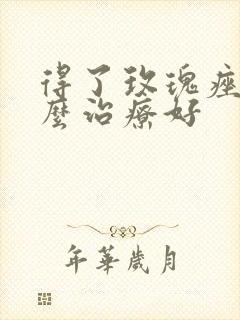 得了玫瑰痤
麼治療好
年華歲月